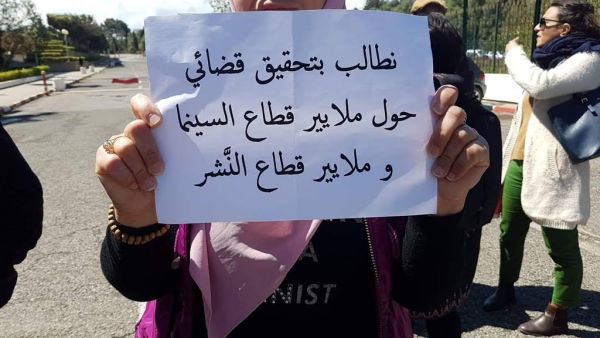 نطالب بتحقيق قضائي
حول ملايير قطاع السينما
و ملايير قطاع النَّشر
A
NIST